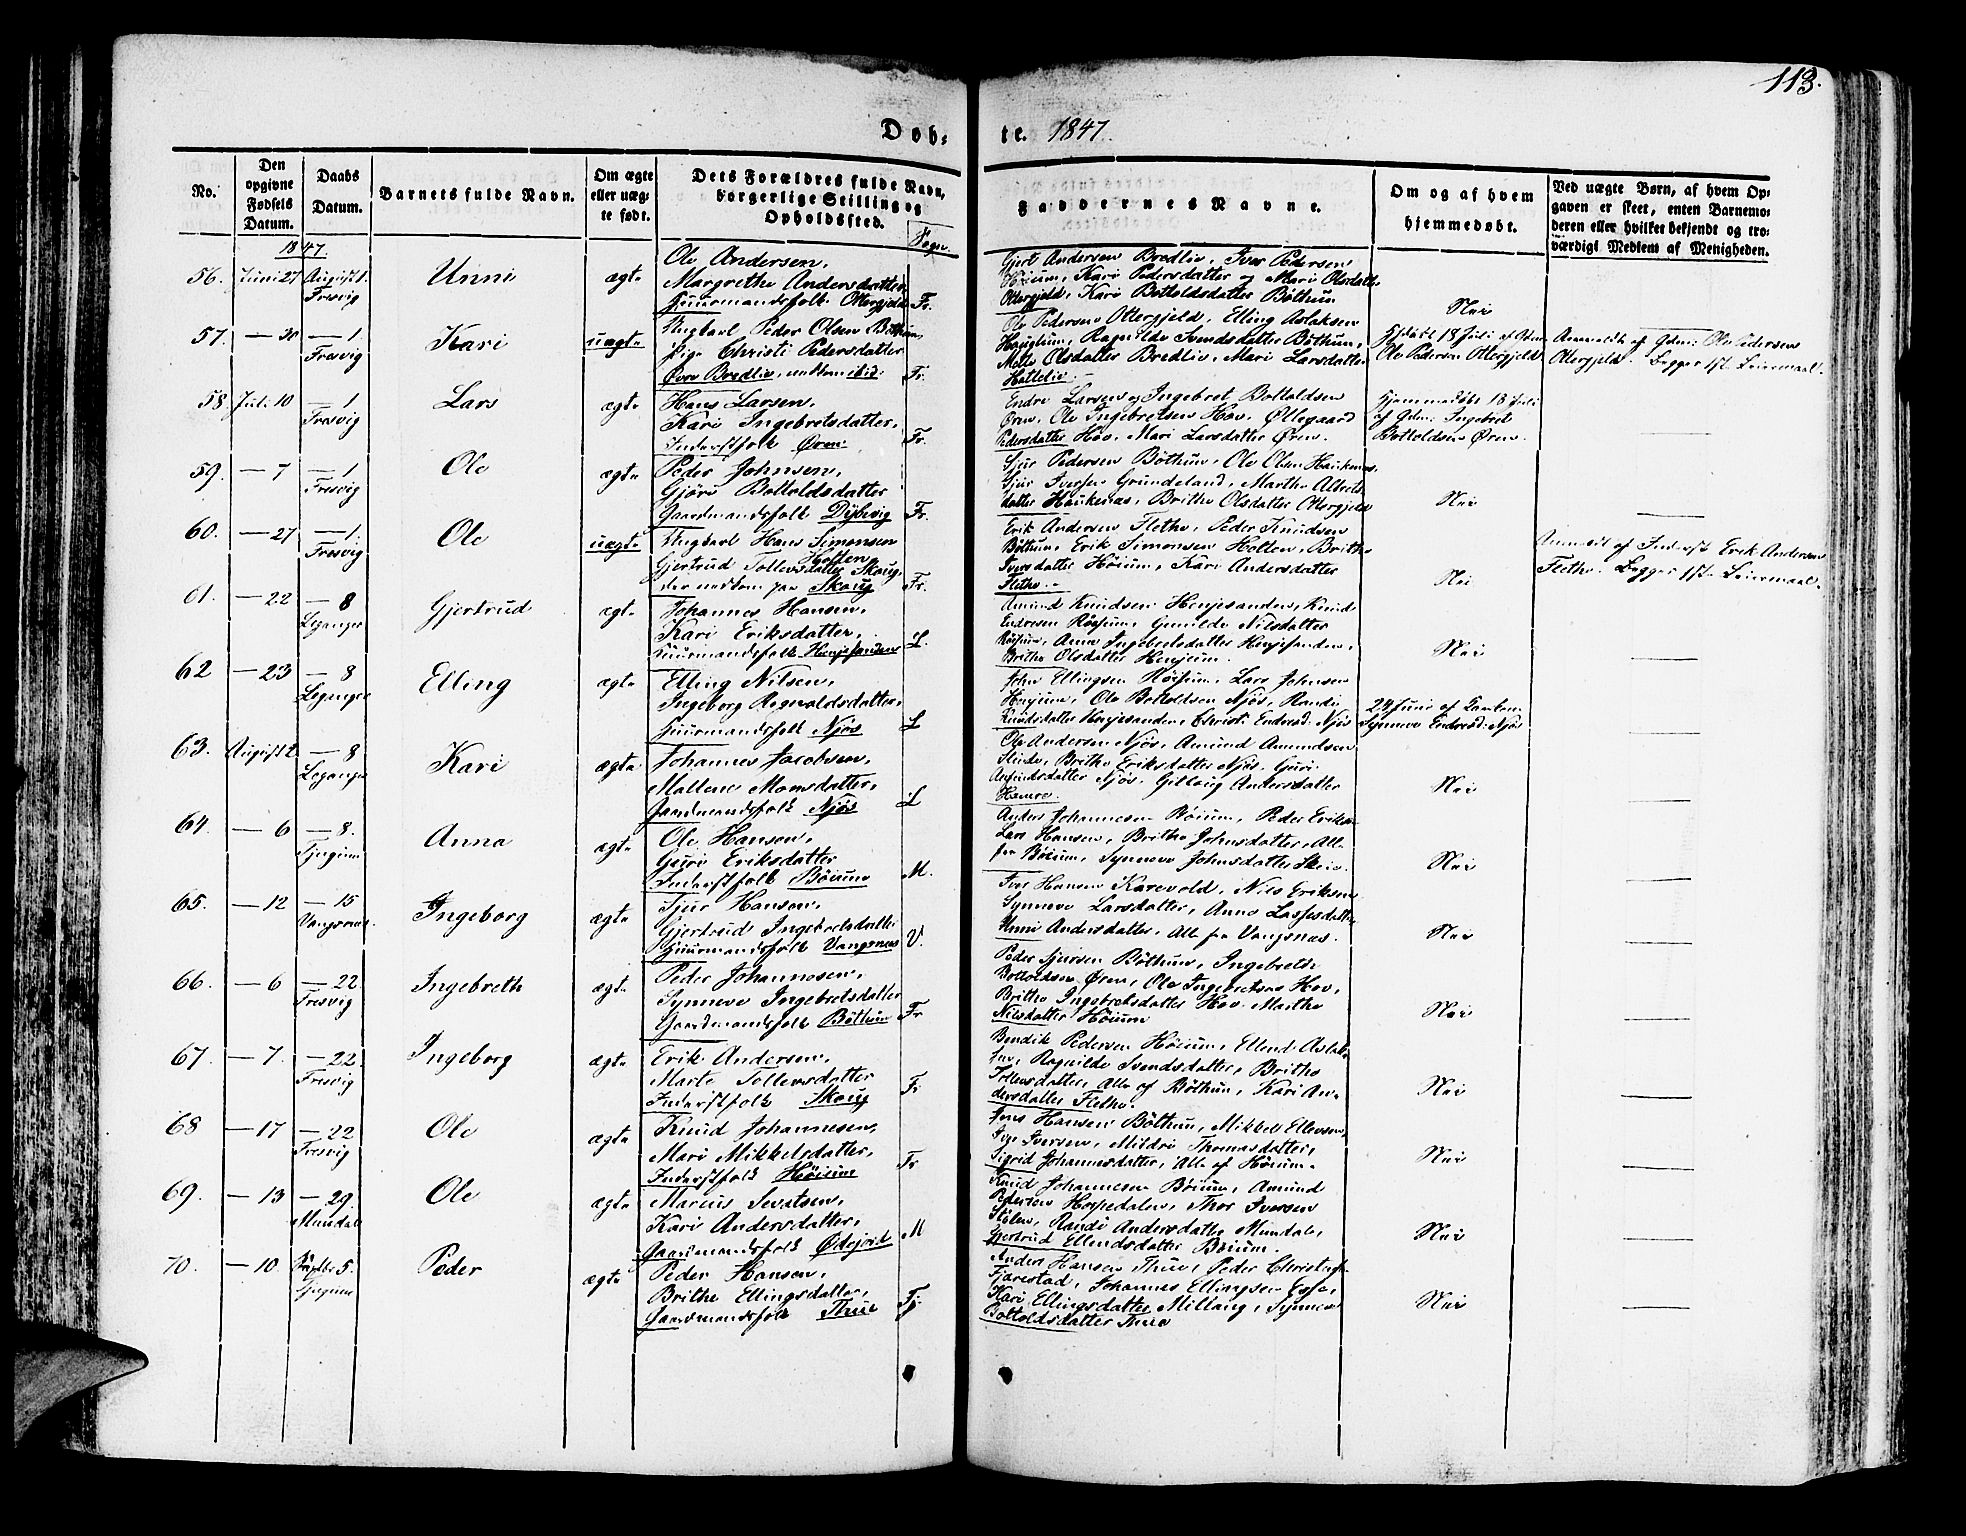 113.
Døb-
te. 1847.
No.
Den opgivne Fødsels Datum.
Daabs Datum.
Barnets fulde Navn.
Om ægte eller uægte født.
Dets Forældres fulde Navn, borgerlige Stilling og Opholdssted.
Sogn.
Faddernes Navne.
Om og af hvem hjemmedøbt.
Ved uægte Børn, af hvem Opgaven er skeet, enten Barnemoderen eller hvilket bekjendt og troværdigt Medlem af Menigheden.
1847.
56. Juni 27 August 1. Fresvig Unni ægte
Ole Andersen,
Margrethe Andersdatter,
Huusmandsfolk Ottergjeld Fr.
Gjert Andersen Bredlie, Iver Pedersen
Høium, Kari Pedersdatter og Mari Olsdatter
Ottergjeld, Kari Botholdsdatter Bøthun
Nei
57. — 30 — 1 Fresvig Kari uægte
Ungkarl Peder Olsen Bøthun
Pige Christi Pedersdatter
Øvre Bredlie, Fr.
Ole Pedersen Ottergjeld, Elling Aslaksen
Ragnilde Svendsdatter Bøthun,
Mette Olsdatter Bredlie, Mari Larsdatter
Hattelie.
18 Juli af Gdm.
Ole Pedersen Ottergjeld
Anmeldt af Gdm: Ole Pedersen
Ottergjeld. Begges 1ste Leiermaal.
58. Juli 10 — 1 Fresvig Lars ægte
Hans Larsen,
Kari Ingebretsdatter,
Inderstfolk Øren Fr.
Endre Larsen og Ingebret Bottoldsen
Øren, Ole Ingebretsen Hov, Øllegaard
Pedersdatter Hov, Mari Larsdatter Øren.
Hjemmedøbt 13 Juli
af Gdm. Ingebret
Bottoldsen Øren.
59. — 7 — 1 Fresvig Ole ægte
Peder Johnsen,
Gjøri Bottoldsdatter
Gaardmandsfolk Dybevig Fr.
Sjur Pedersen Bøthun, Ole Olsen Haukenæs,
Sjur Iversen Grundeland, Marthe Albrets
datter Haukenæs, Brithe Olsdatter Ottergjeld
Nei
60. — 27 — 1. Fresvig Ole uægte
Ungkarl Hans Simonsen
Holten,
Gjertrud Tollevsdatter Skoug,
Skoug Fr.
Erik Andersen Flethe, Peder Knudsen
Bøthun, Erik Simonsen Holten, Brithe
Iversdatter Høium, Kari Andersdatter
Flethe.
Nei
Anmeldt af Inderst Erik Andersen
Flethe. Begges 1ste Leiermaal.
61. — 22 — 8 Leganger Gjertrud ægte
Johannes Hansen,
Kari Eriksdatter,
Huusmandsfolk Henjesanden L.
Amund Knudsen Henjesanden, Knud
Endresen Røisum, Gunilde Nilsdatter
Røisum, Anne Ingebretsdatter Henjesanden,
Brithe Olsdatter Henjum.
Nei
62 — 23 — 8 Leganger Elling ægte
Elling Nilsen,
Ingeborg Ragnvaldsdatter,
Huusmandsfolk Njøs L
John Ellingsen Røisum, Lars Johnsen
Henjum, Ole Botholdsen Njøs, Randi
Knudsdatter Henjesanden, Christi Endresd: Njøs
Synneve Endresd: Njøs
63. August 2 — 8 Leganger Kari ægte
Johannes Jacobsen,
Malene Monsdatter,
Gaardmandsfolk Njøs L
Ole Andersen Njøs, Amund Amundsen
Slinde, Brithe Eriksdatter Njøs, Guri
Amundsdatter Njøs, Gillaug Andersdatter
Hamre.
Nei
64. — 6 — 8. Anna ægte
Ole Hansen,
Guri Eriksdatter
Inderstfolk Bøium M.
Anders Johannesen Bøium, Peder Eriksen
Lars Hansen, Brithe Johnsdatter, Alle
fra Bøium, Synneve Johnsdatter Skeie.
Nei
65. — 12 — 15 Vangsnæs. Ingeborg ægte
Sjur Hansen,
Gjertrud Ingebretsdatter
Huusmandsfolk Vangsnæs V.
Iver Hansen Karevold, Nils Eriksen
Synneve Larsdatter, Anne Lassesdatter
Unni Andersdatter, Alle fra Vangsnæs.
Nei
66. — 6 — 22 Fresvig Ingebreth ægte
Peder Johannesen,
Synneve Ingebretsdatter
Gaardmandsfolk Bøthun Fr
Peder Sjursen Bøthun, Ingebreth
Bottoldsen Øren, Ole Ingebretsen Hov,
Brithe Ingebretsdatter Hov. Marthe
Nilsdatter Høium
Nei
67. — 7. — 22. Fresvig Ingeborg ægte
Erik Andersen,
Marte Tollevsdatter
Inderstfolk Skoug Fr
Bendik Pedersen Høium, Ellend Aslak-
sen, Ragnilde Svendsdatter, Brithe
Tollevsdatter, Alle af Bøthun, Kari An-
dersdatter Flethe.
Nei
68 — 17 — 22 Fresvig Ole ægte
Knud Johannesen,
Mari Mikkelsdatter,
Inderstfolk Høium Fr
Jens Hansen Bøthun, Mikkel Ellevsen,
Iver Iversen, Mildri Thomasdatter,
Sigrid Johannesdatter, Alle af Høium.
Nei
69. — 13 — 29. Mundal Ole ægte
Marcus Sevatsen,
Kari Andersdatter,
Gaardmandsfolk Ødejord M
Knud Johannesen Bøium, Amund
Pedersen Horpedalen, Thor Iversen
Stølen, Randi Andersdatter Mundal,
Gjertrud Ellendsdatter Bøium.
Nei
70. — 10 Septbr 5. Peder ægte
Peder Hansen,
Brithe Ellingsdatter,
Gaardmandsfolk Thue Fj
Anders Hansen Thue, Peder
Fjærestad, Johannes Ellingsen
Kari Ellingsdatter Synneve
Bottoldsdatter Thue
Nei